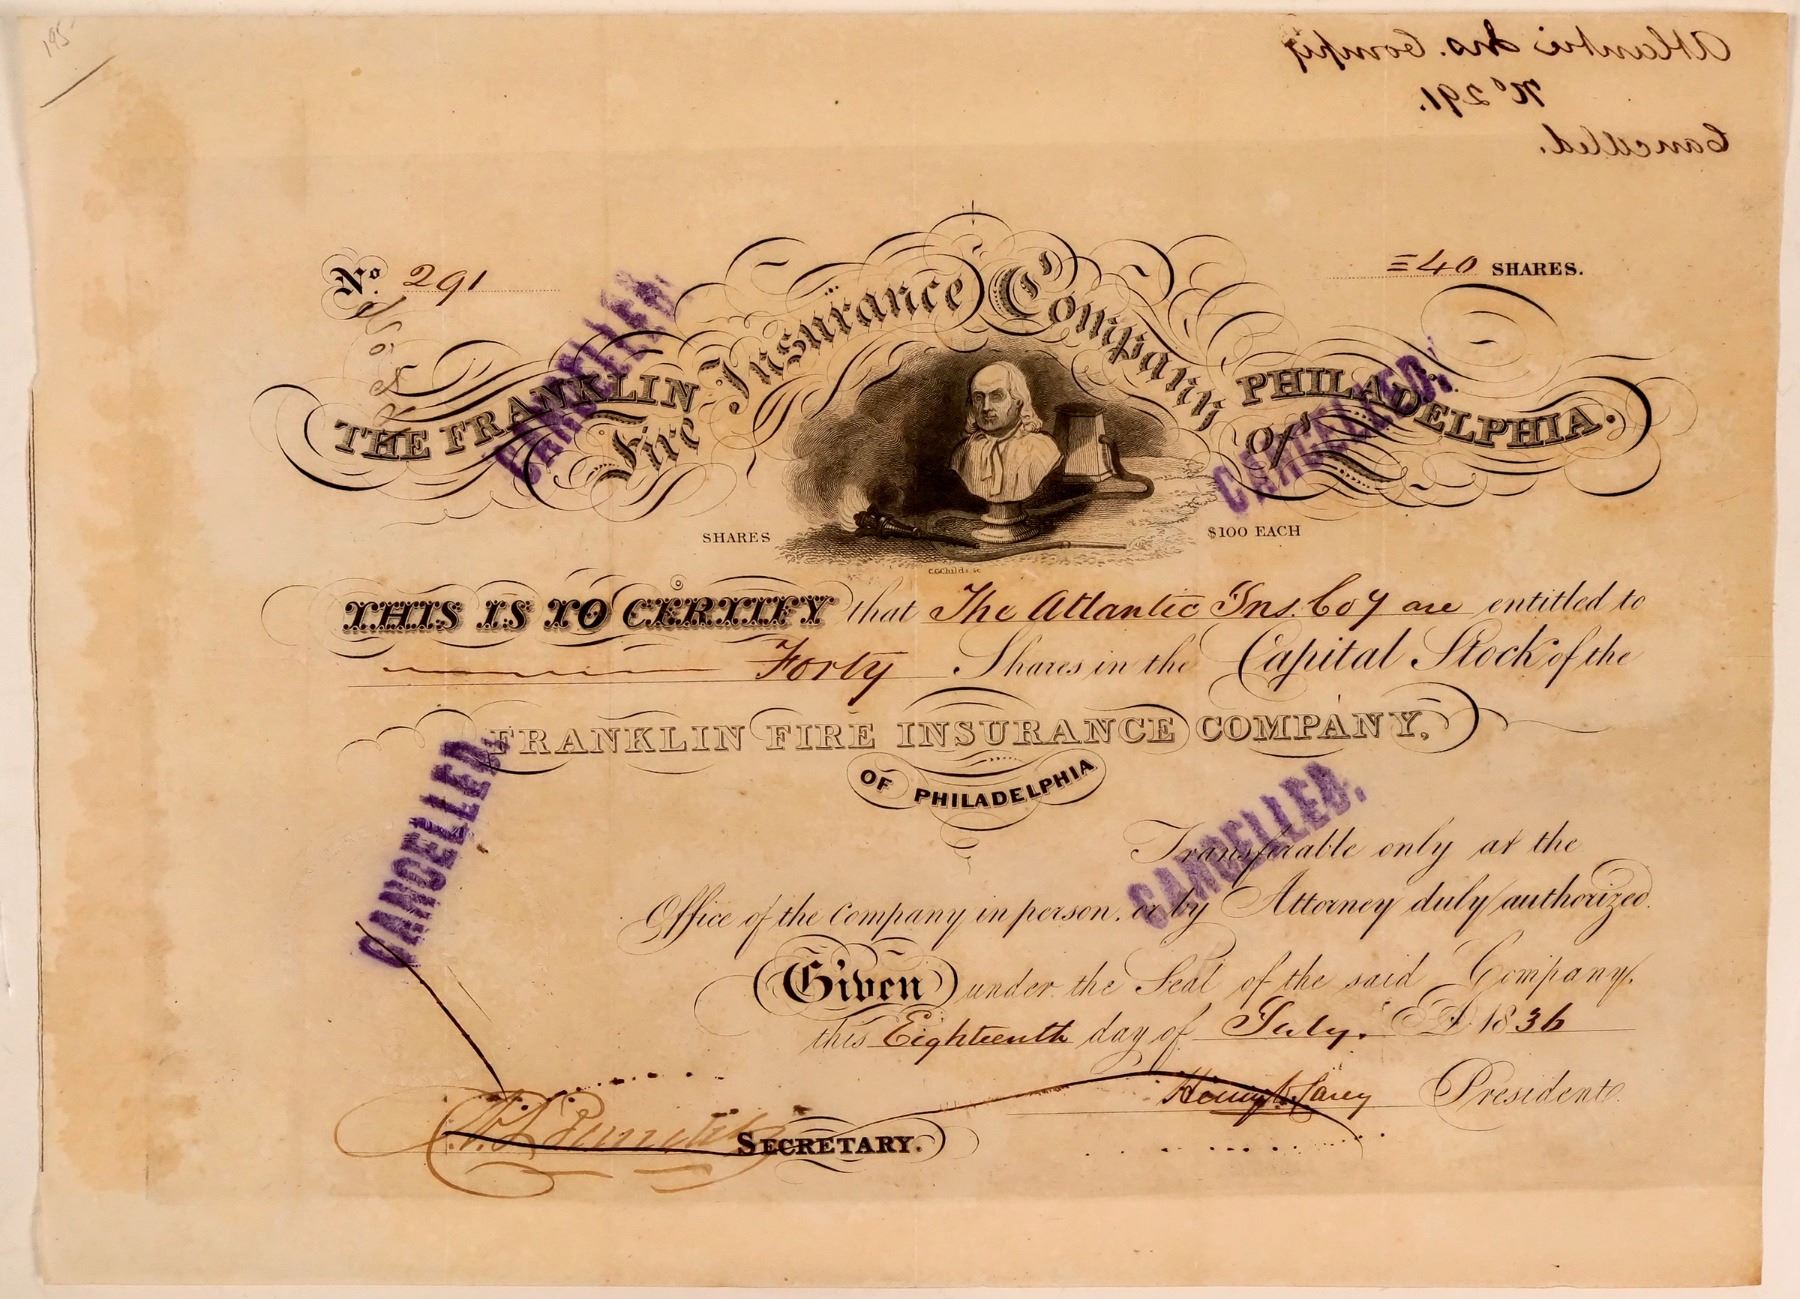 195
Atlantic Ins. Compy
No 291.
Cancelled.
No. 291
=40 SHARES.
THE FRANKLIN Fire Insurance Company Of PHILADELPHIA.
CANCELLED.
CANCELLED.
SHARES
$100 EACH
C.G.Childs sc
THIS IS TO CERTIFY that The Atlantic Ins. Coy are entitled to
Forty Shares in the Capital Stock of the
FRANKLIN FIRE INSURANCE COMPANY.
OF PHILADELPHIA
CANCELLED.
CANCELLED.
Transferable only at the
Office of the Company in person, or by Attorney duly authorized.
Given under the Seal of the said Company,
this Eighteenth day of July. A.D. 1836
President.
SECRETARY.